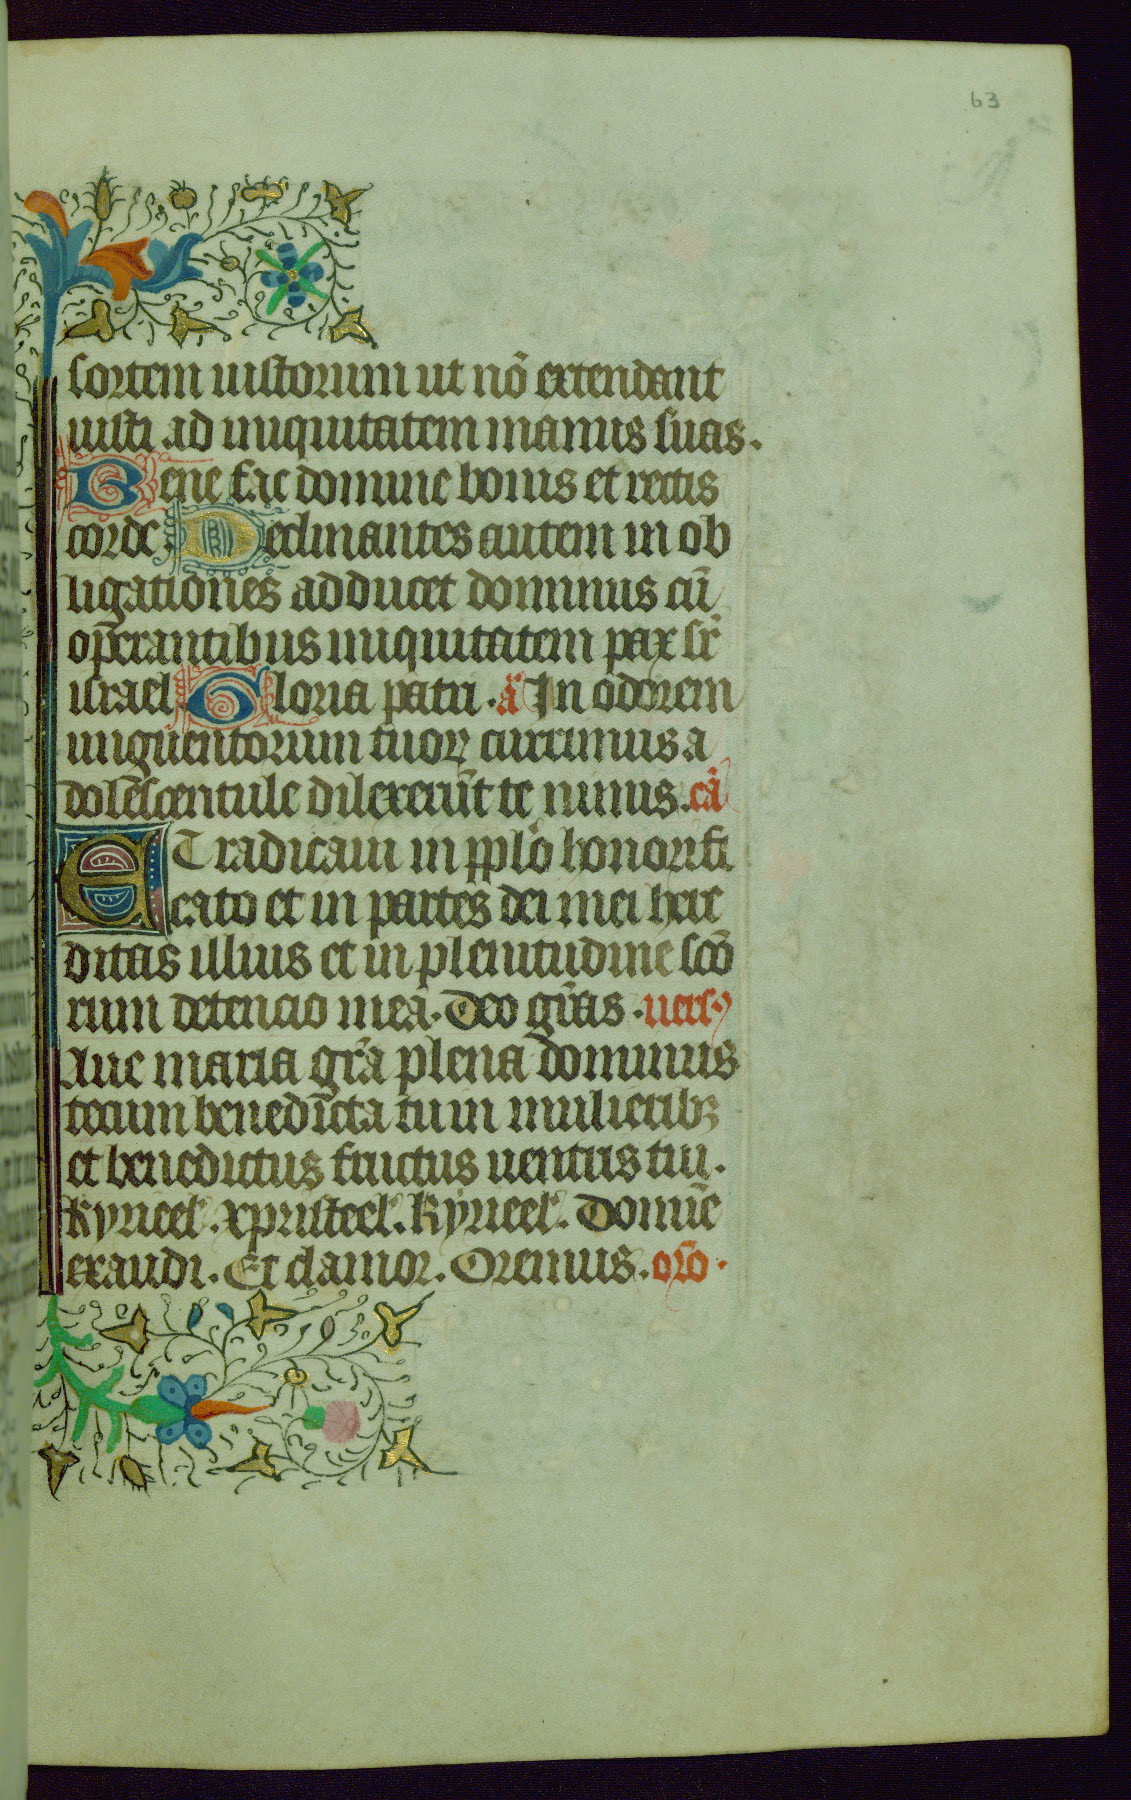 63
sortem iustorum ut nō extendant
iusti ad iniquitatem manus suas.
Bene fac domine bonis et rectis
corde. Declinantes autem in ob
ligationes adducet dominus cū
operantibus iniquitatem pax sr̄
israel Gloria patri. a᷈ In odorem
unguentorum tuoꝝ currimus a
dolēscentule dilexerūt te nimis. cā
ET radicaui in pplō honorifi
cato et in partes dei mei here
ditas illius et in plenitudine scō
rum detencio mea. Deo gr̄as. uersꝰ
Aue maria gr̄a plena dominus
tecum benedicta tu in mulieribꝫ
et benedictus fructus uentris tui.
Kyrieel'. xpristeel'. Kyrieel'. Domīe
exaudi. Et clamor. Oremus. orō.